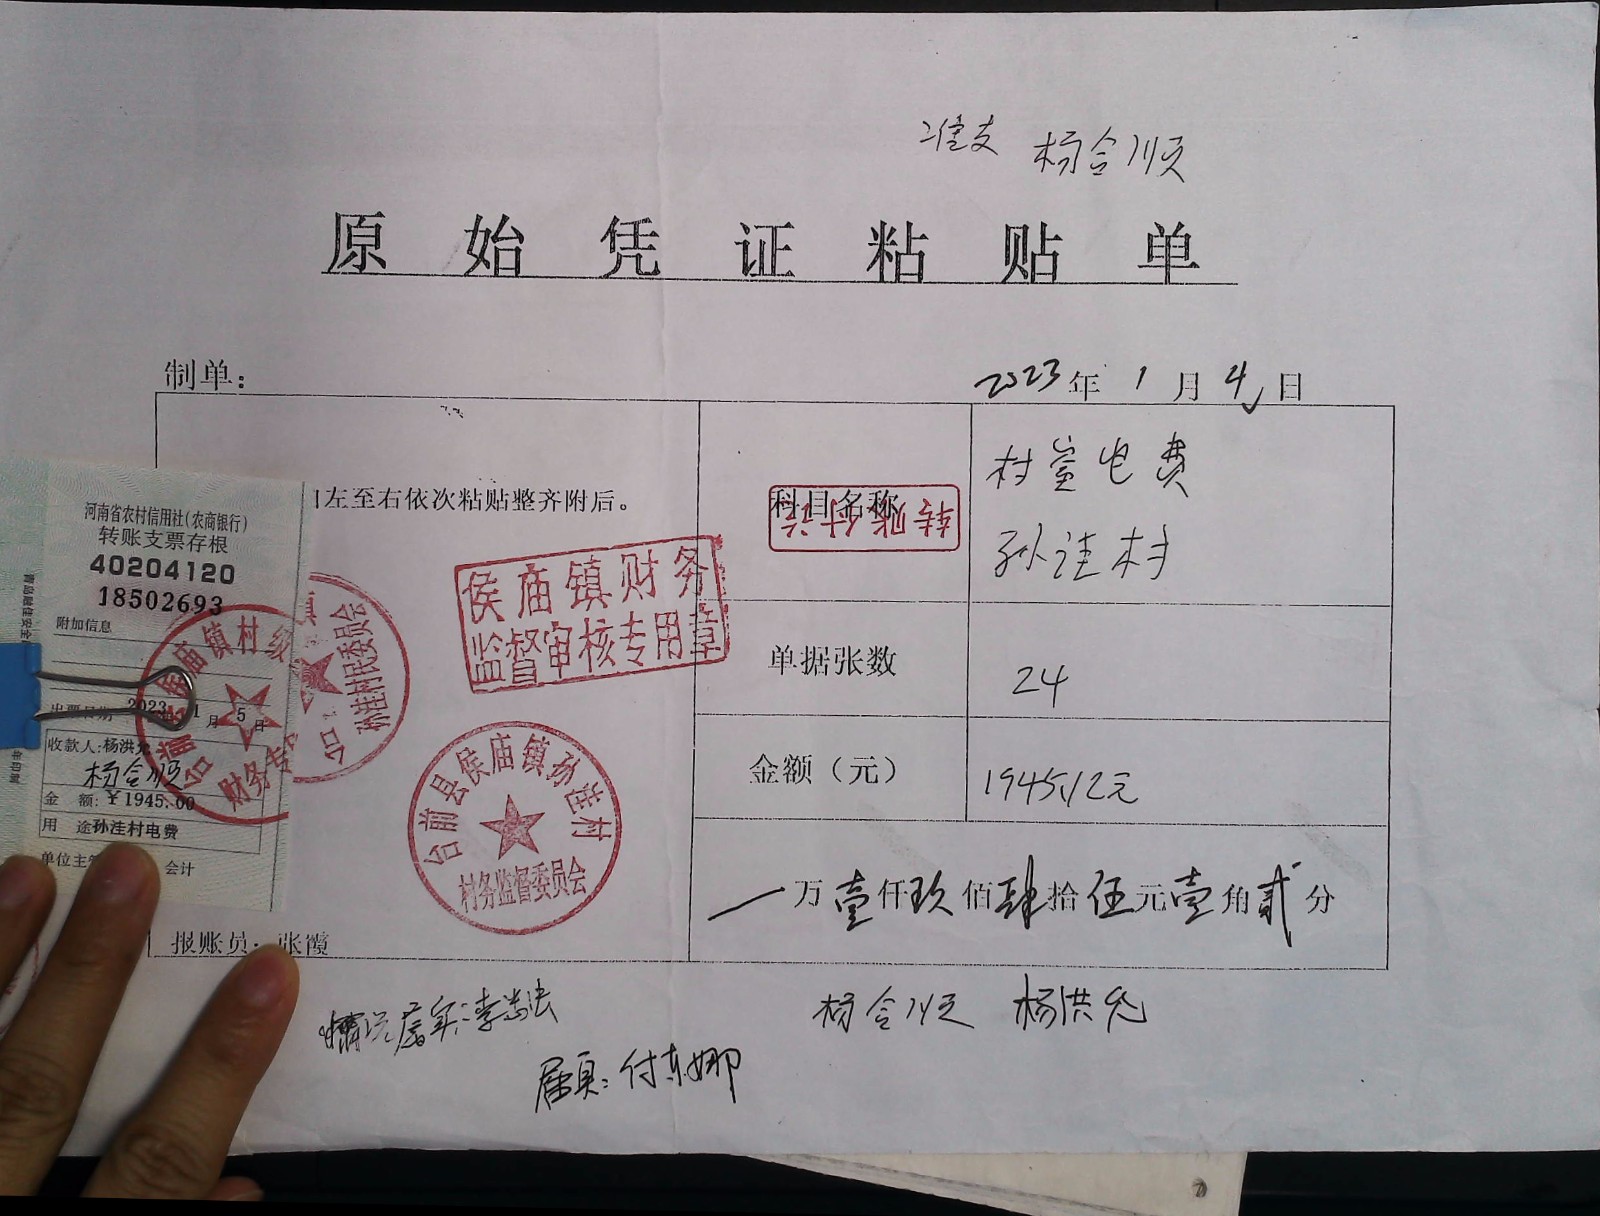 准支 杨合顺
原始凭证粘贴单
制单：
2023年1月4日
左至右依次粘贴整齐附后。
科目名称
转账付讫
村室电费
孙洼村
单据张数
24
金额（元）
1945.12元
一万壹仟玖佰肆拾伍元壹角贰分
河南省农村信用社(农商银行)
转账支票存根
40204120
18502693
附加信息
出票日期 2023年1月5日
收款人:杨洪允
杨合顺
金 额:￥1945.00
用 途孙洼村电费
单位主管 会计
侯庙镇财务
监督审核专用章
台前县侯庙镇孙洼村
村务监督委员会
台前 侯庙镇村级
财务专
孙洼村民委员会
报账员：张霞
杨合顺 杨洪允
付东娜